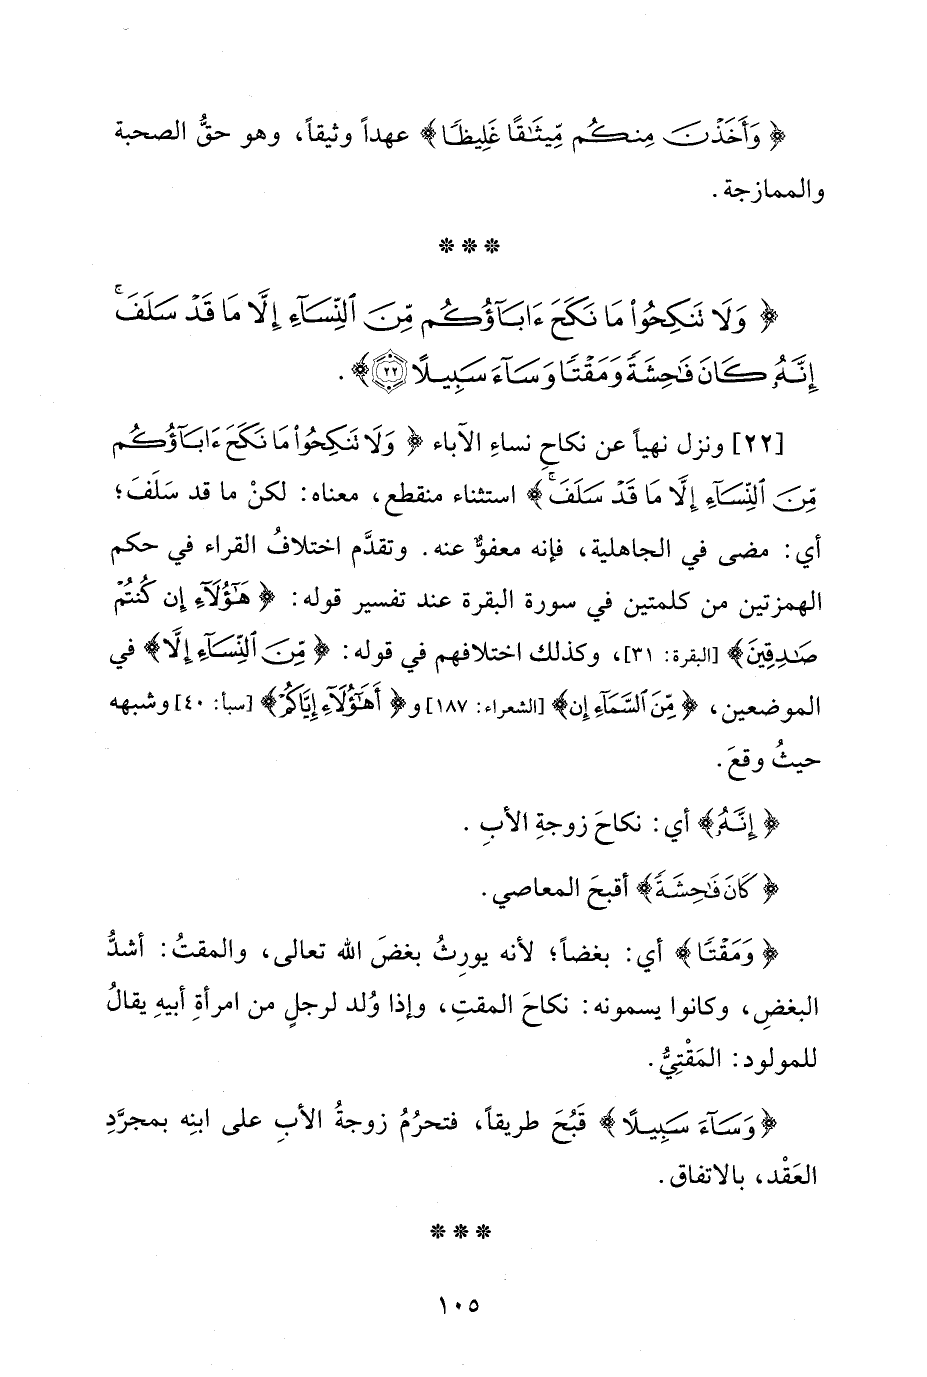 ﴿ وَأَخَذْنَ مِنكُم مِّيثَٰقًا غَلِيظًا ﴾ عهداً وثيقاً، وهو حقُّ الصحبة
والممازجة .
* * *
﴿ وَلَا تَنكِحُوا۟ مَا نَكَحَ ءَابَآؤُكُم مِّنَ ٱلنِّسَآءِ إِلَّا مَا قَدْ سَلَفَ ۚ
إِنَّهُۥ كَانَ فَٰحِشَةً وَمَقْتًا وَسَآءَ سَبِيلًا (٢٢) ﴾ .
[٢٢] ونزل نهياً عن نكاحِ نساءِ الآباء ﴿ وَلَا تَنكِحُوا۟ مَا نَكَحَ ءَابَآؤُكُم
مِّنَ ٱلنِّسَآءِ إِلَّا مَا قَدْ سَلَفَ ۚ ﴾ استثناء منقطع، معناه: لكنْ ما قد سَلَفَ؛
أي: مضى في الجاهلية، فإنه معفوٌّ عنه. وتقدَّم اختلافُ القراء في حكم
الهمزتين من كلمتين في سورة البقرة عند تفسير قوله: ﴿ هَٰٓؤُلَآءِ إِن كُنتُمْ
صَٰدِقِينَ ﴾ [البقرة: ٣١]، وكذلك اختلافهم في قوله: ﴿ مِّنَ ٱلنِّسَآءِ إِلَّا ﴾ في
الموضعين، ﴿ مِّنَ ٱلسَّمَآءِ إِن ﴾ [الشعراء: ١٨٧] و﴿ أَهَٰٓؤُلَآءِ إِيَّاكُمْ ﴾ [سبأ: ٤٠] وشبهه
حيثُ وقعَ .
﴿ إِنَّهُۥ ﴾ أي: نكاحَ زوجةِ الأبِ .
﴿ كَانَ فَٰحِشَةً ﴾ أقبحَ المعاصي .
﴿ وَمَقْتًا ﴾ أي: بغضاً؛ لأنه يورِثُ بغضَ الله تعالى، والمقتُ: أشدُّ
البغضِ، وكانوا يسمونه: نكاحَ المقتِ، وإذا وُلد لرجلٍ من امرأةِ أبيهِ يقالُ
للمولود: المَقْتِيُّ .
﴿ وَسَآءَ سَبِيلًا ﴾ قَبُحَ طريقاً، فتحرُمُ زوجةُ الأبِ على ابنِه بمجرَّدِ
العَقْد، بالاتفاق .
* * *
١٠٥